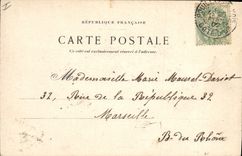 RÉPUBLIQUE FRANÇAISE
CARTE POSTALE
Ce côté est exclusivement réservé à l'adresse.
Mademoiselle Marie Maurel-Dariot
32, Rue de la République 32
Marseille
B. du Rhône